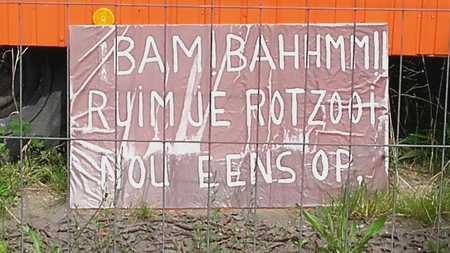 BAM! BAHHMM!!
RUIM JE ROTZOOI
NOU EENS OP.